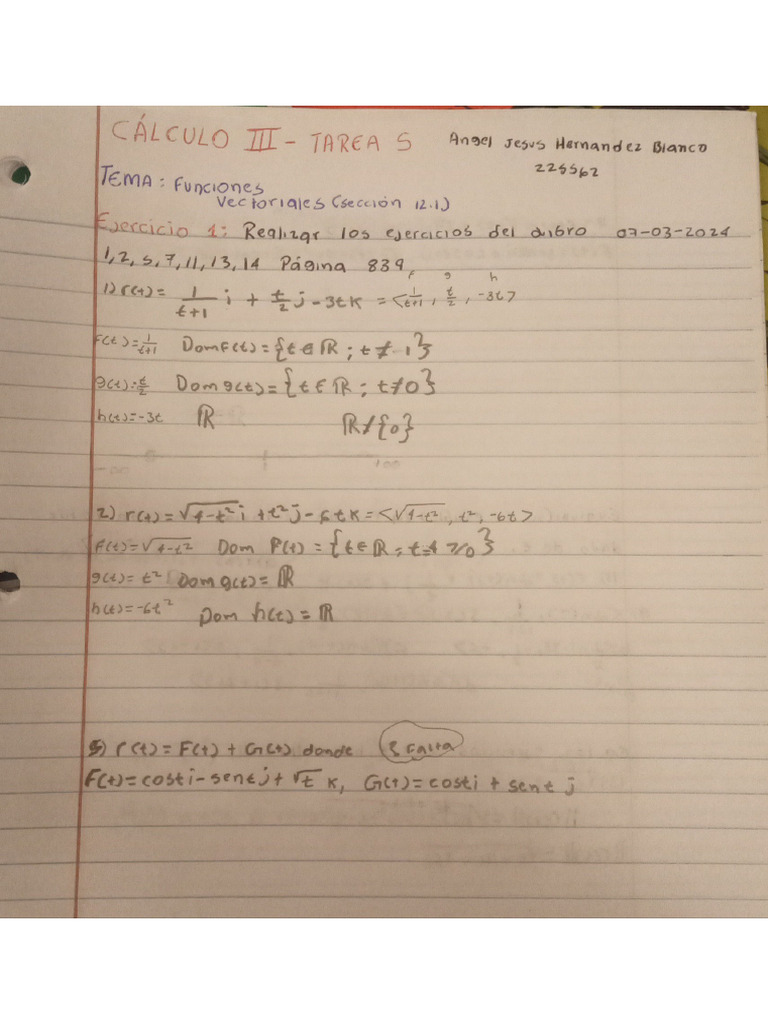 CÁLCULO III - TAREA 5 Angel Jesus Hernandez Blanco
225562
TEMA: Funciones
Vectoriales (sección 12.1)
Ejercicio 1: Realizar los ejercicios del libro 07-03-2024
1, 2, 5, 7, 11, 13, 14 Página 839
f g h
1) r(t) = 1/(t+1) i + t/2 j - 3tk = <1/(t+1), t/2, -3t>
f(t) = 1/(t+1) Dom f(t) = {t ∈ ℝ ; t ≠ -1}
g(t) = t/2 Dom g(t) = {t ∈ ℝ ; t ≠ 0}
h(t) = -3t ℝ ℝ/{0}
2) r(t) = √(4-t²) i + t² j - 6tk = <√(4-t²), t², -6t>
f(t) = √(4-t²) Dom f(t) = {t ∈ ℝ ; ≥ 0}
g(t) = t² Dom g(t) = ℝ
h(t) = -6t² Dom h(t) = ℝ
5) r(t) = F(t) + G(t) donde falta
F(t) = cost i - sent j + √t k, G(t) = cost i + sent j